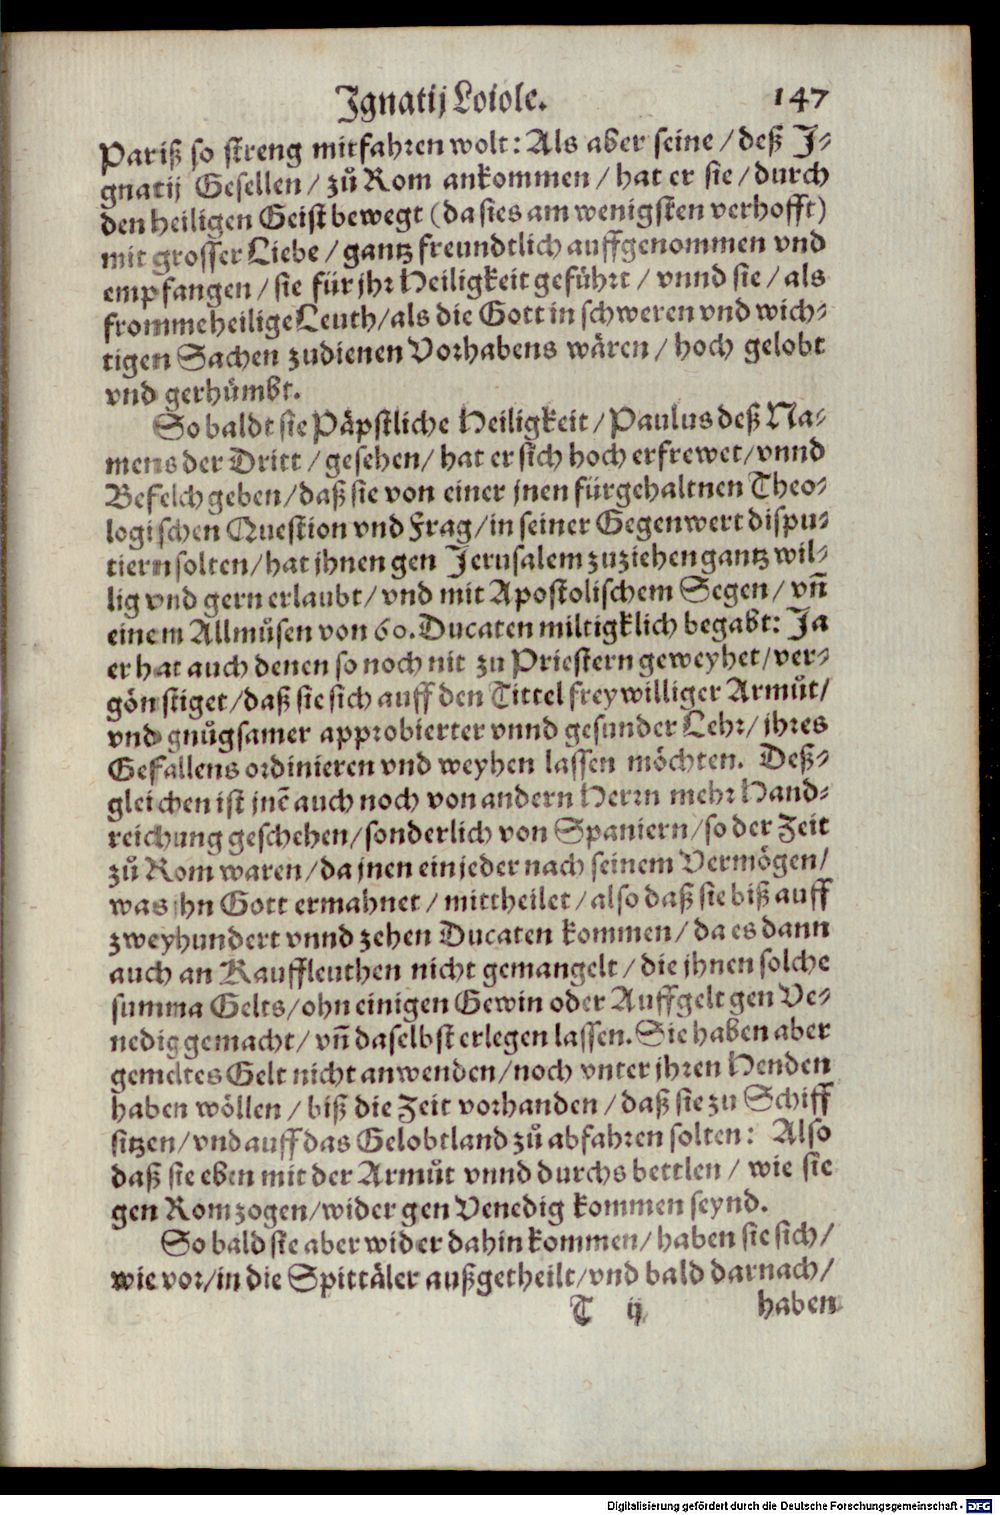 Ignatij Loiole. 147
Pariß so streng mitfahren wolt: Als aber seine / deß I-
gnatij Gesellen / zů Rom ankommen / hat er sie / durch
den heiligen Geist bewegt (da sies am wenigsten verhofft)
mit grosser Liebe / gantz freundtlich auffgenommen vnd
empfangen / sie für jhr Heiligkeit geführt / vnnd sie / als
fromme heilige Leuth / als die Gott in schweren vnd wich-
tigen Sachen zudienen Vorhabens wären / hoch gelobt
vnd gerhümbt.
So baldt sie Päpstliche Heiligkeit / Paulus deß Na-
mens der Dritt / gesehen / hat er sich hoch erfrewet / vnnd
Befelch geben / daß sie von einer jnen fürgehaltnen Theo-
logischen Question vnd Frag / in seiner Gegenwert dispu-
tiern solten / hat jhnen gen Jerusalem zuziehen gantz wil-
lig vnd gern erlaubt / vnd mit Apostolischem Segen / vñ
einem Allmůsen von 60. Ducaten miltigklich begabt: Ja
er hat auch denen so noch nit zu Priestern geweyhet / ver-
gönstiget / daß sie sich auff den Tittel freywilliger Armůt /
vnd gnůgsamer approbierter vnnd gesunder Lehr / jhres
Gefallens ordinieren vnd weyhen lassen möchten. Deß-
gleichen ist jnẽ auch noch von andern Herrn mehr Hand-
reichung geschehen / sonderlich von Spaniern / so der Zeit
zů Rom waren / da jnen ein jeder nach seinem Vermögen /
was jhn Gott ermahnet / mittheilet / also daß sie biß auff
zweyhundert vnnd zehen Ducaten kommen / da es dann
auch an Kauffleuthen nicht gemangelt / die jhnen solche
summa Gelts / ohn einigen Gewin oder Auffgelt gen Ve-
nedig gemacht / vñ daselbst erlegen lassen. Sie haben aber
gemeltes Gelt nicht anwenden / noch vnter jhren Henden
haben wöllen / biß die Zeit vorhanden / daß sie zu Schiff
sitzen / vnd auff das Gelobtland zů abfahren solten: Also
daß sie eben mit der Armůt vnnd durchs bettlen / wie sie
gen Rom zogen / wider gen Venedig kommen seynd.
So bald sie aber wider dahin kommen / haben sie sich /
wie vor / in die Spittäler außgetheilt / vnd bald darnach /
T ij haben
Digitalisierung gefördert durch die Deutsche Forschungsgemeinschaft - DFG